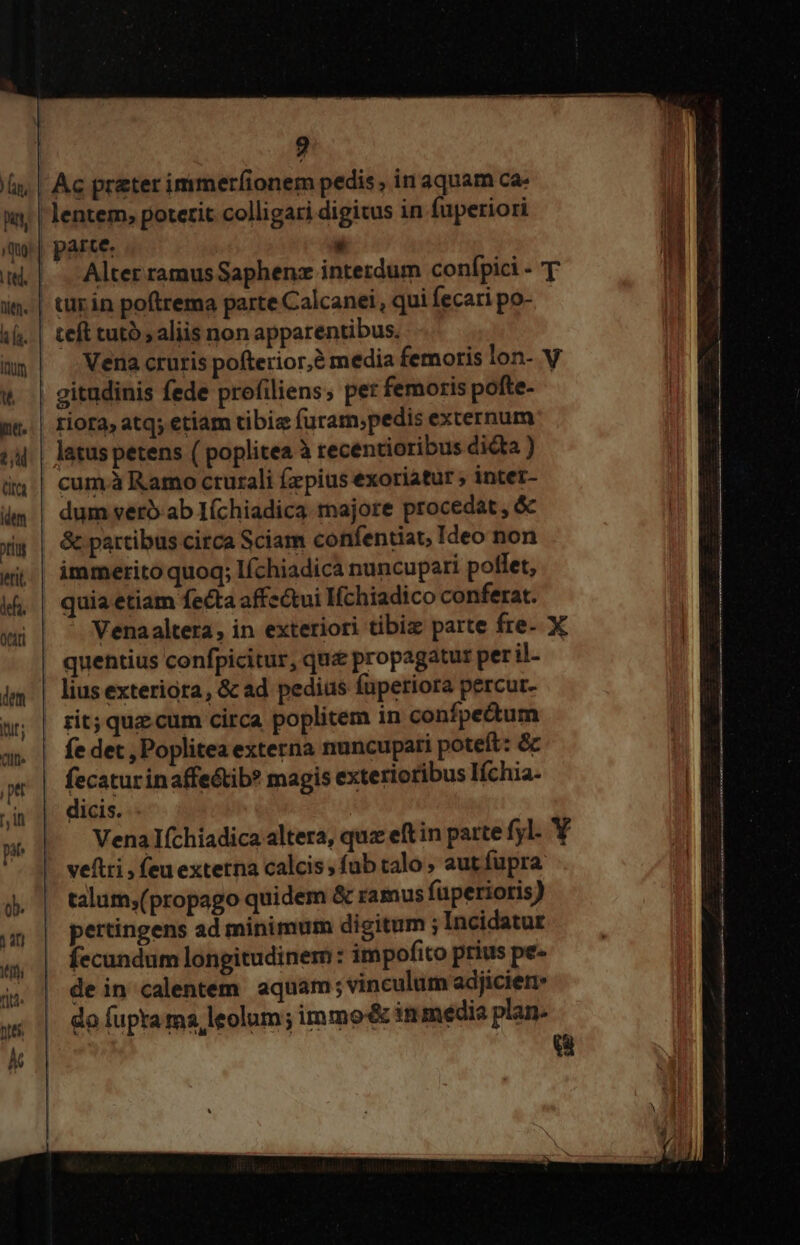 9
Ac præter immerſionem pedis, in aquam ca-
lentem, poterit colligari digitus in ſuperiori
parte.
Alter ramus Saphenæ interdum conſpici - T
tur in poſtrema parte Calcanei, qui ſecari po-
teſt tutò, aliis non apparentibus.
Vena cruris poſterior, è media femoris lon- V
gitudinis ſede proſiliens, per femoris poſte-
riora, atq; etiam tibiæ ſuram, pedis externum
latus petens ( poplitea à recentioribus dicta )
cum à Ramo crurali ſæpius exoriatur, inter-
dum verò ab Iſchiadica majore procedat, &
& partibus circa Sciam conſentiat, Ideo non
immerito quoq; Iſchiadica nuncupari poſſet,
quia etiam ſecta affectui Iſchiadico conferat.
Vena altera, in exteriori tibiæ parte fre- X
quentius conſpicitur, quæ propagatur per il-
lius exteriora, & ad pedias ſuperiora percur-
rit; quæ cum circa poplitem in conſpectum
ſe det, Poplitea externa nuncupari poteſt: &
ſecatur in affectib⁹ magis exterioribus Iſchia-
dicis.
Vena Iſchiadica altera, quæ eſt in parte ſyl- Y
veſtri, ſeu externa calcis, ſub talo, aut ſupra
talum, (propago quidem & ramus ſuperioris)
pertingens ad minimum digitum ; Incidatur
ſecundum longitudinem : impoſito prius pe-
de in calentem aquam; vinculum adjicien-
do ſupra ma leolum; immo & in media plan-
ta